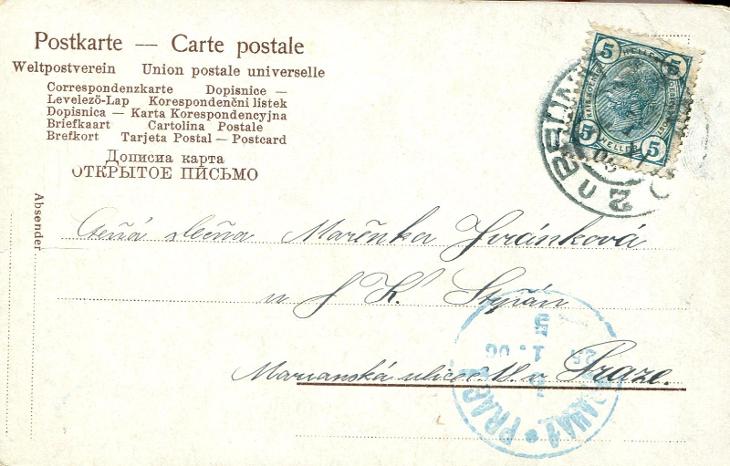 Postkarte — Carte postale
Weltpostverein Union postale universelle
Correspondenzkarte Dopisnice —
Levelező-Lap Korespondenční listek
Dopisnica — Karta Korespondencyjna
Briefkaart Cartolina Postale
Brefkort Tarjeta Postal — Postcard
Дописна карта
ОТКРЫТОЕ ПИСЬМО
Absender
5 HELLER 5
5 HELLER 5
Ctěná slečna Mařenka
u J K. Styřán
Marianská ulice č. 18. v Praze.
25 1. 06
PRAG
PRAHA